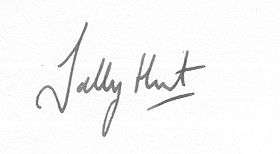 Sally Hunt